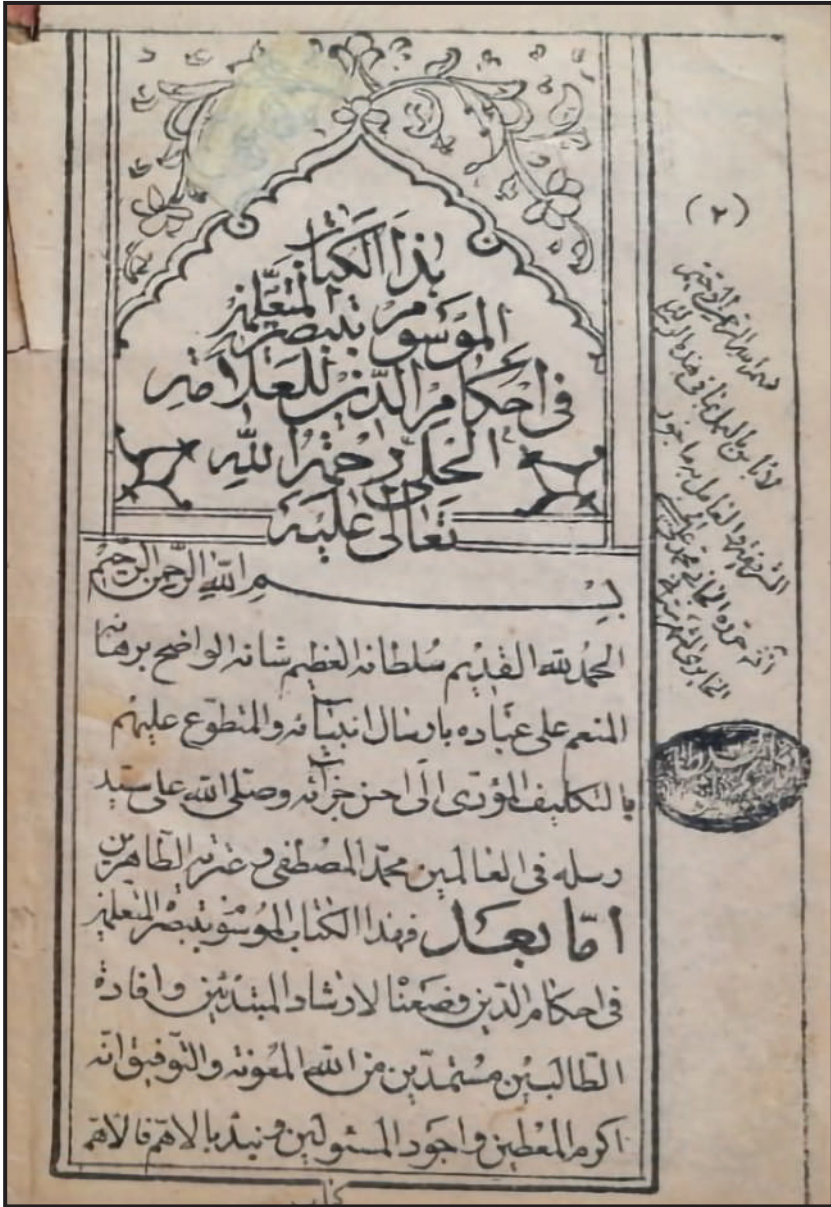 هذا الكتاب
الموسوم بتبصرة المتعلمين
في احكام الدين للعلامة
الحلي رحمة الله
تعالى عليه
(٢)
بسم الله الرحمن الرحيم
الحمد لله القديم سلطانه العظيم شانه الواضح برهانه
المنعم على عباده بارسال انبيائه والمتطوع عليهم
بالتكليف المؤدى الى احسن جزائه وصلى الله على سيد
رسله فى العالمين محمد المصطفى وعترته الطاهرين
امّا بعد فهذا الكتاب الموسوم بتبصرة المتعلمين
فى احكام الدين وضعنا لارشاد المبتدئين وافادة
الطالبين مستمدين من الله المعونة والتوفيق انه
اكرم المعطين واجود المسئولين ونبدء بالاهم فالاهم
كتاب
بسم الله الرحمن الرحيم
لا باس بالعمل بما فى هذه الرسالة
الشريفة والعامل بها ماجور